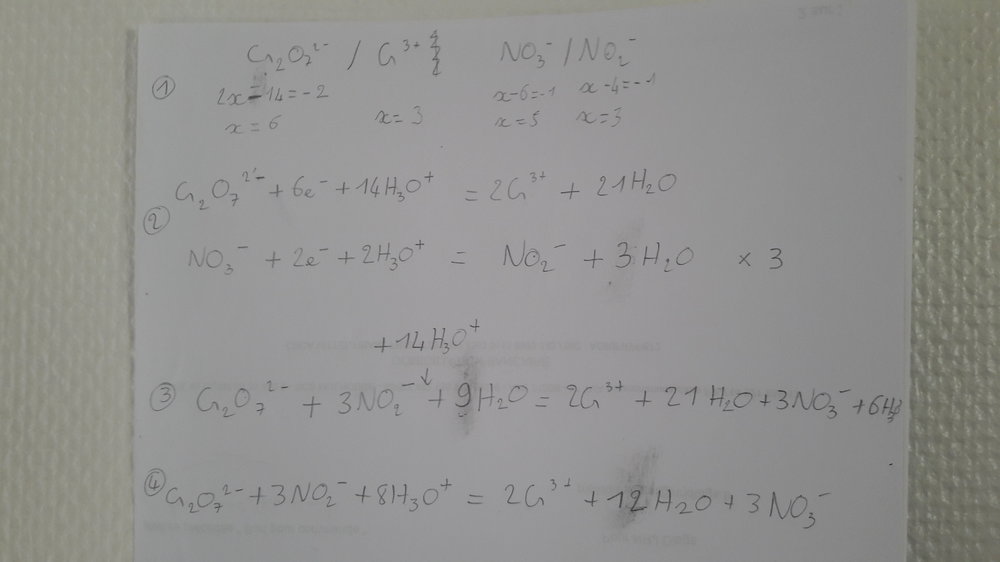 Cr₂O₇²⁻ / Cr³⁺ NO₃⁻ / NO₂⁻
① 2x-14=-2 x-6=-1 x-4=-1
x=6 x=3 x=5 x=3
Cr₂O₇²⁻ + 6e⁻ + 14H₃O⁺ = 2Cr³⁺ + 21H₂O
②
NO₃⁻ + 2e⁻ + 2H₃O⁺ = NO₂⁻ + 3H₂O × 3
+14H₃O⁺
↓
③ Cr₂O₇²⁻ + 3NO₂⁻ + 9H₂O = 2Cr³⁺ + 21H₂O + 3NO₃⁻ + 6H₃
④ Cr₂O₇²⁻ + 3NO₂⁻ + 8H₃O⁺ = 2Cr³⁺ + 12H₂O + 3NO₃⁻